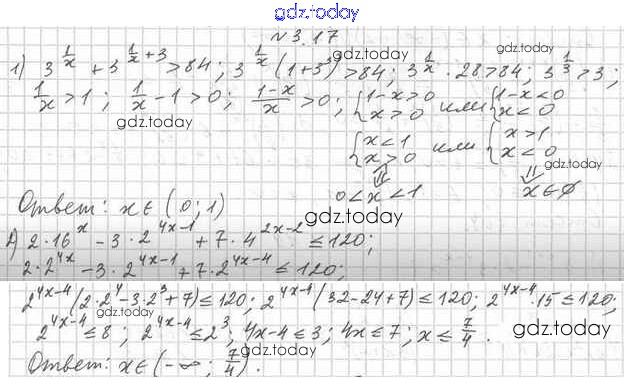 gdz.today
№3.17
1) 3^{1/x} + 3^{1/x + 3} > 84; 3^{1/x} (1+3^3) > 84; 3^{1/x} · 28 > 84; 3^{1/3} > 3;
1/x > 1; 1/x − 1 > 0; (1−x)/x > 0; {1−x>0 x>0 или {1−x<0 x<0
{x<1 x>0 или {x>1 x<0
⇓ ⇓
0<x<1 x∈∅
Ответ: x∈(0; 1)
2·16^x − 3·2^{4x−1} + 7·4^{2x−2} ≤ 120;
2·2^{4x} − 3·2^{4x−1} + 7·2^{4x−4} ≤ 120;
2^{4x−4} (2·2^4 − 3·2^3 + 7) ≤ 120; 2^{4x−4} (32−24+7) ≤ 120; 2^{4x−4} · 15 ≤ 120;
2^{4x−4} ≤ 8; 2^{4x−4} ≤ 2^3; 4x−4 ≤ 3; 4x ≤ 7; x ≤ 7/4.
Ответ: x∈(−∞; 7/4).
gdz.today
gdz.today
gdz.today
gdz.today
gdz.today
gdz.today
gdz.today
gdz.today